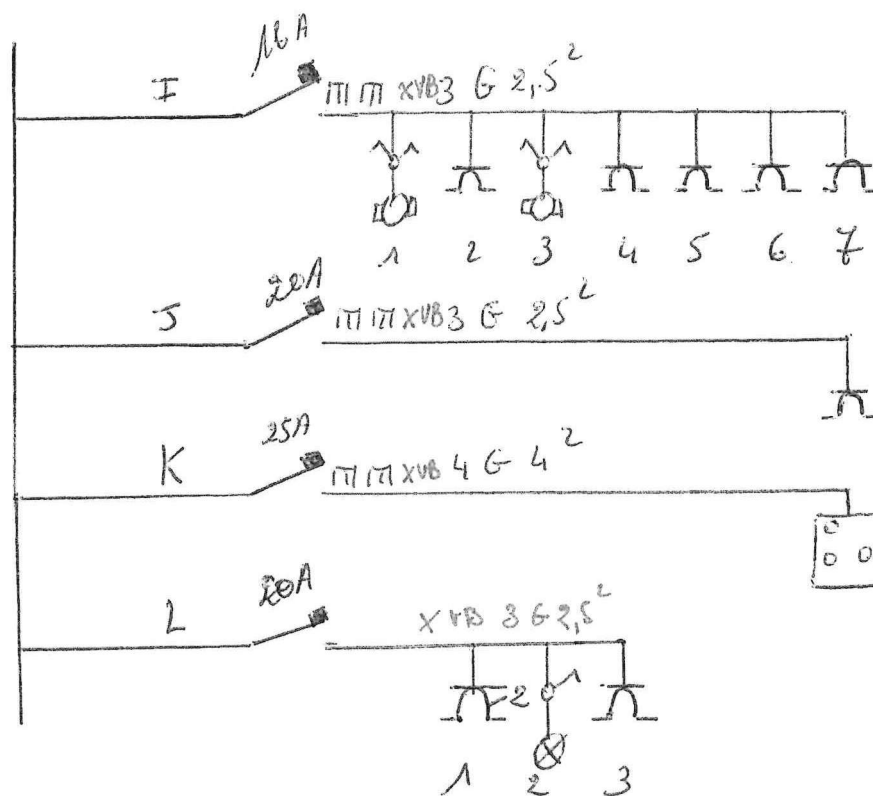 16A
I XVB 3 G 2,5²
1 2 3 4 5 6 7
20A
J XVB 3 G 2,5²
25A
K XVB 4 G 4²
20A
L XVB 3 G 2,5²
2 1
1 2 3